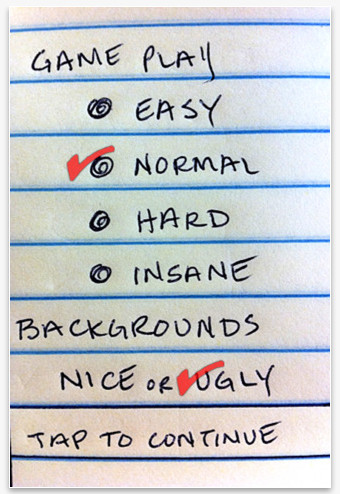 GAME PLAY
EASY
NORMAL
HARD
INSANE
BACKGROUNDS
NICE OR UGLY
TAP TO CONTINUE